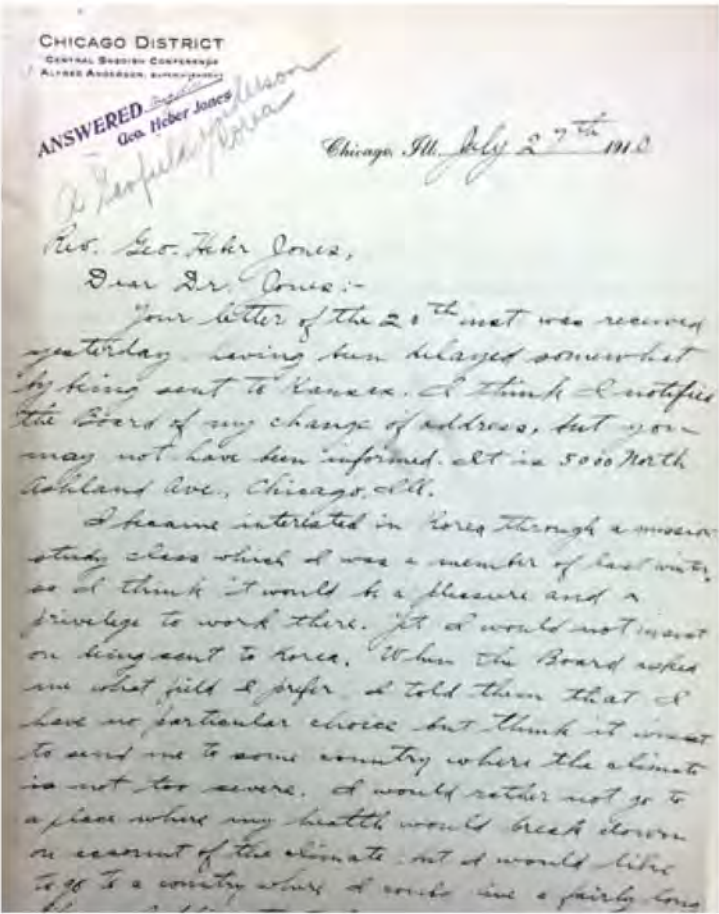 CHICAGO DISTRICT
CENTRAL SWEDISH CONFERENCE
ALFRED ANDERSON, SUPERINTENDENT
ANSWERED
Geo. Heber Jones
A Garfield Anderson
Korea
Chicago, Ill. July 27th 1910
Rev. Geo. Heber Jones,
Dear Dr. Jones:-
Your letter of the 20th inst was received
yesterday having been delayed somewhat
by being sent to Kansas. I think I notified
the Board of my change of address, but you
may not have been informed. It is 5000 North
Ashland Ave., Chicago, Ill.
I became interested in Korea through a mission
study class which I was a member of last winter,
so I think it would be a pleasure and a
privilege to work there. Yet I would not insist
on being sent to Korea. When the Board asked
me what field I prefer I told them that I
have no particular choice but think it
to send me to some country where the climate
is not too severe. I would rather not go to
a place where my health would break down
on account of the climate but I would like
to go to a country where I could live a fairly long